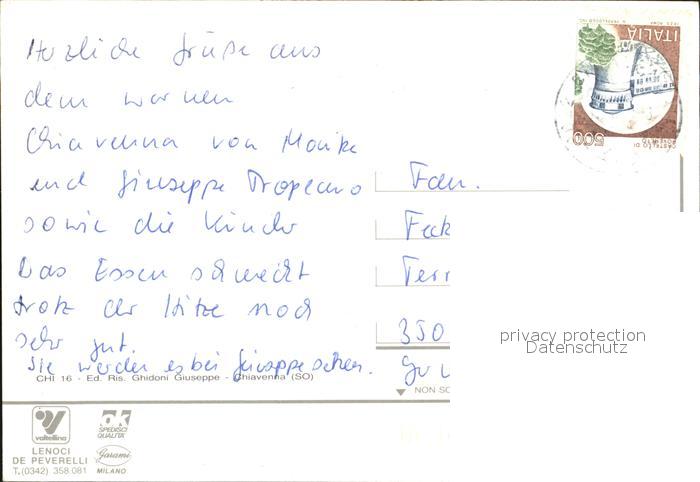 Herzliche Grüße aus
dem warmen
Chiavenna von Monika
und Giuseppe Tropeano
sowie die Kinder
Das Essen schmeckt
trotz der Hitze noch
sehr gut.
Sie werden es bei Giuseppe sehen.
Fam.
350
CHI 16 - Ed. Ris. Ghidoni Giuseppe - Chiavenna (SO)
NON SC
valtellina
LENOCI
DE PEVERELLI
T.(0342) 358.081
OK
SPEDISCI
QUALITÀ
Garami
MILANO
ITALIA
500
CASTELLO DI
ROVERETO
privacy protection
Datenschutz